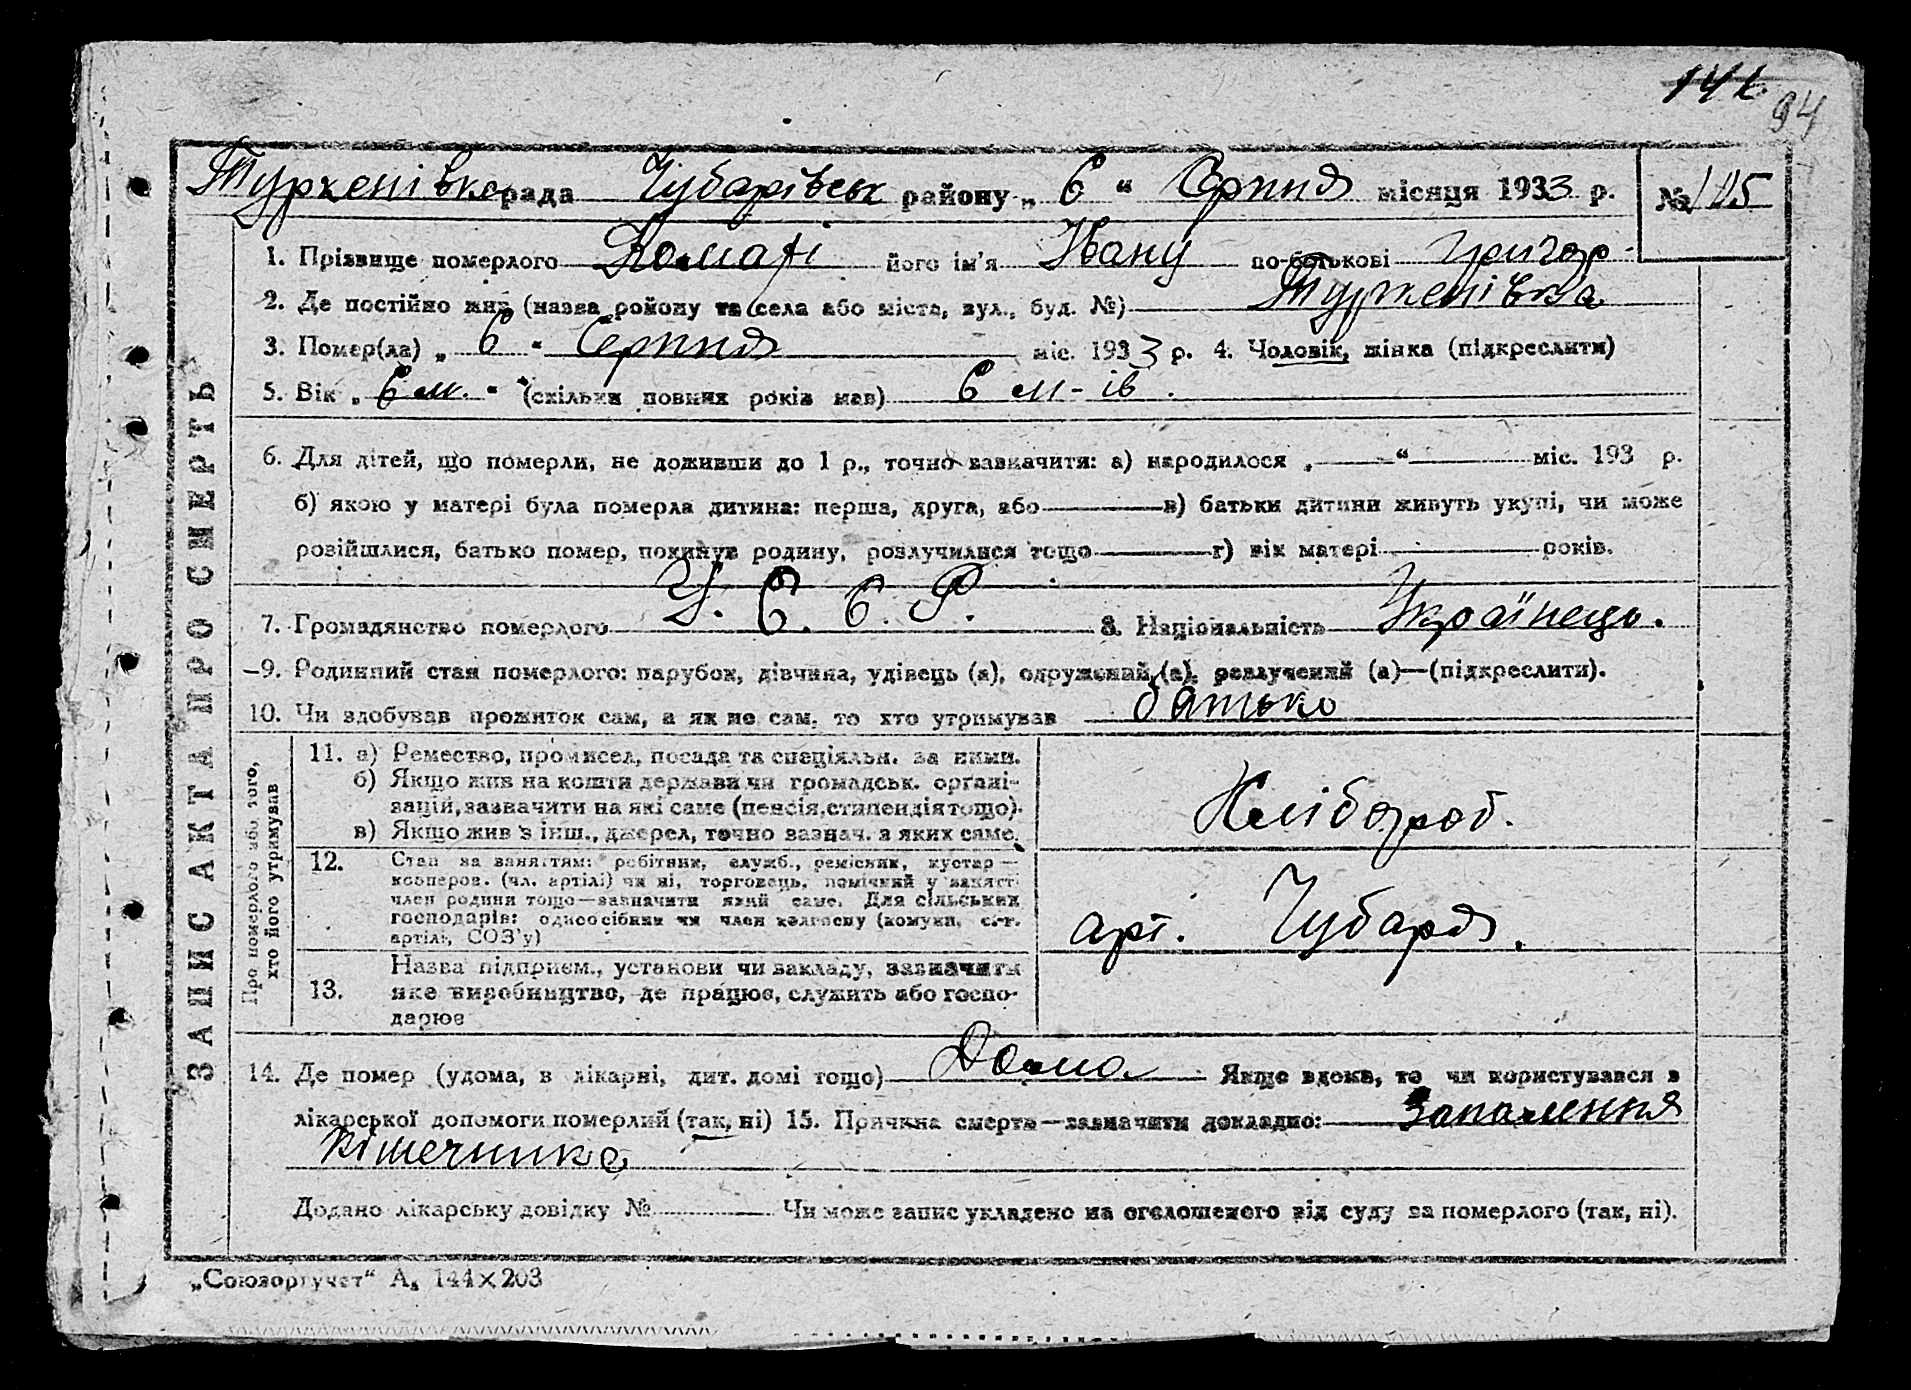 141
94
Туркенівка рада Чубарівськ району „ 6 “ Серпня місяця 1933 р. № 115
1. Прізвище померлого його ім'я Івану по-батькові Григор-
2. Де постійно жив (назва району та села або міста, вул., буд. №) Туркенівка
3. Помер(ла) „ 6 " Серпня міс. 1933 р. 4. Чоловік, жінка (підкреслити)
5. Вік „ 6 м. " (скільки повних років мав) 6 м-ів.
6. Для дітей, що померли, не доживши до 1 р., точно зазначити: а) народилося „ — “ — міс. 193 р.
б) якою у матері була померла дитина: перша, друга, або — в) батьки дитини живуть укупі, чи може
розійшлися, батько помер, покинув родину, розлучилися тощо — г) вік матері — років.
7. Громадянство померлого У. С. С. Р. 8. Національність Українець.
9. Родинний стан померлого: парубок, дівчина, удівець (а), одружений (а), розлучений (а)—(підкреслити).
10. Чи здобував прожиток сам, а як не сам, то хто утримував батько
ЗАПИС АКТА ПРО СМЕРТЬ
Про померлого або того,
хто його утримував
11. а) Ремество, промисел, посада та спеціяльн. за ними.
б) Якщо жив на кошти держави чи громадськ. органі-
зацій, зазначити на які саме (пенсія, стипендія тощо).
в) Якщо жив з інш., джерел, точно зазнач. з яких саме.
Хлібороб.
12. Стан за заняттям: робітник, служб., ремісник, кустар —
кооперов. (чл. артілі) чи ні, торговець, помічний у занятт
член родини тощо—зазначити який саме. Для сільських
господарів: одноосібник чи член колгоспу (комуни, с.-г.
артілі, СОЗ'у)
арт. Чубаря.
13. Назва підприєм., установи чи закладу, зазначити
яке виробництво, де працює, служить або госпо-
дарює
14. Де помер (удома, в лікарні, дит. домі тощо) Дома Якщо вдома, то чи користувався з
лікарської допомоги померлий (так, ні) 15. Причина смерти—зазначити докладно: Запалення
кішечника
Додано лікарську довідку № Чи може запис укладено на оголошеного від суду за померлого (так, ні).
„Союзоргучет“ А, 144×203